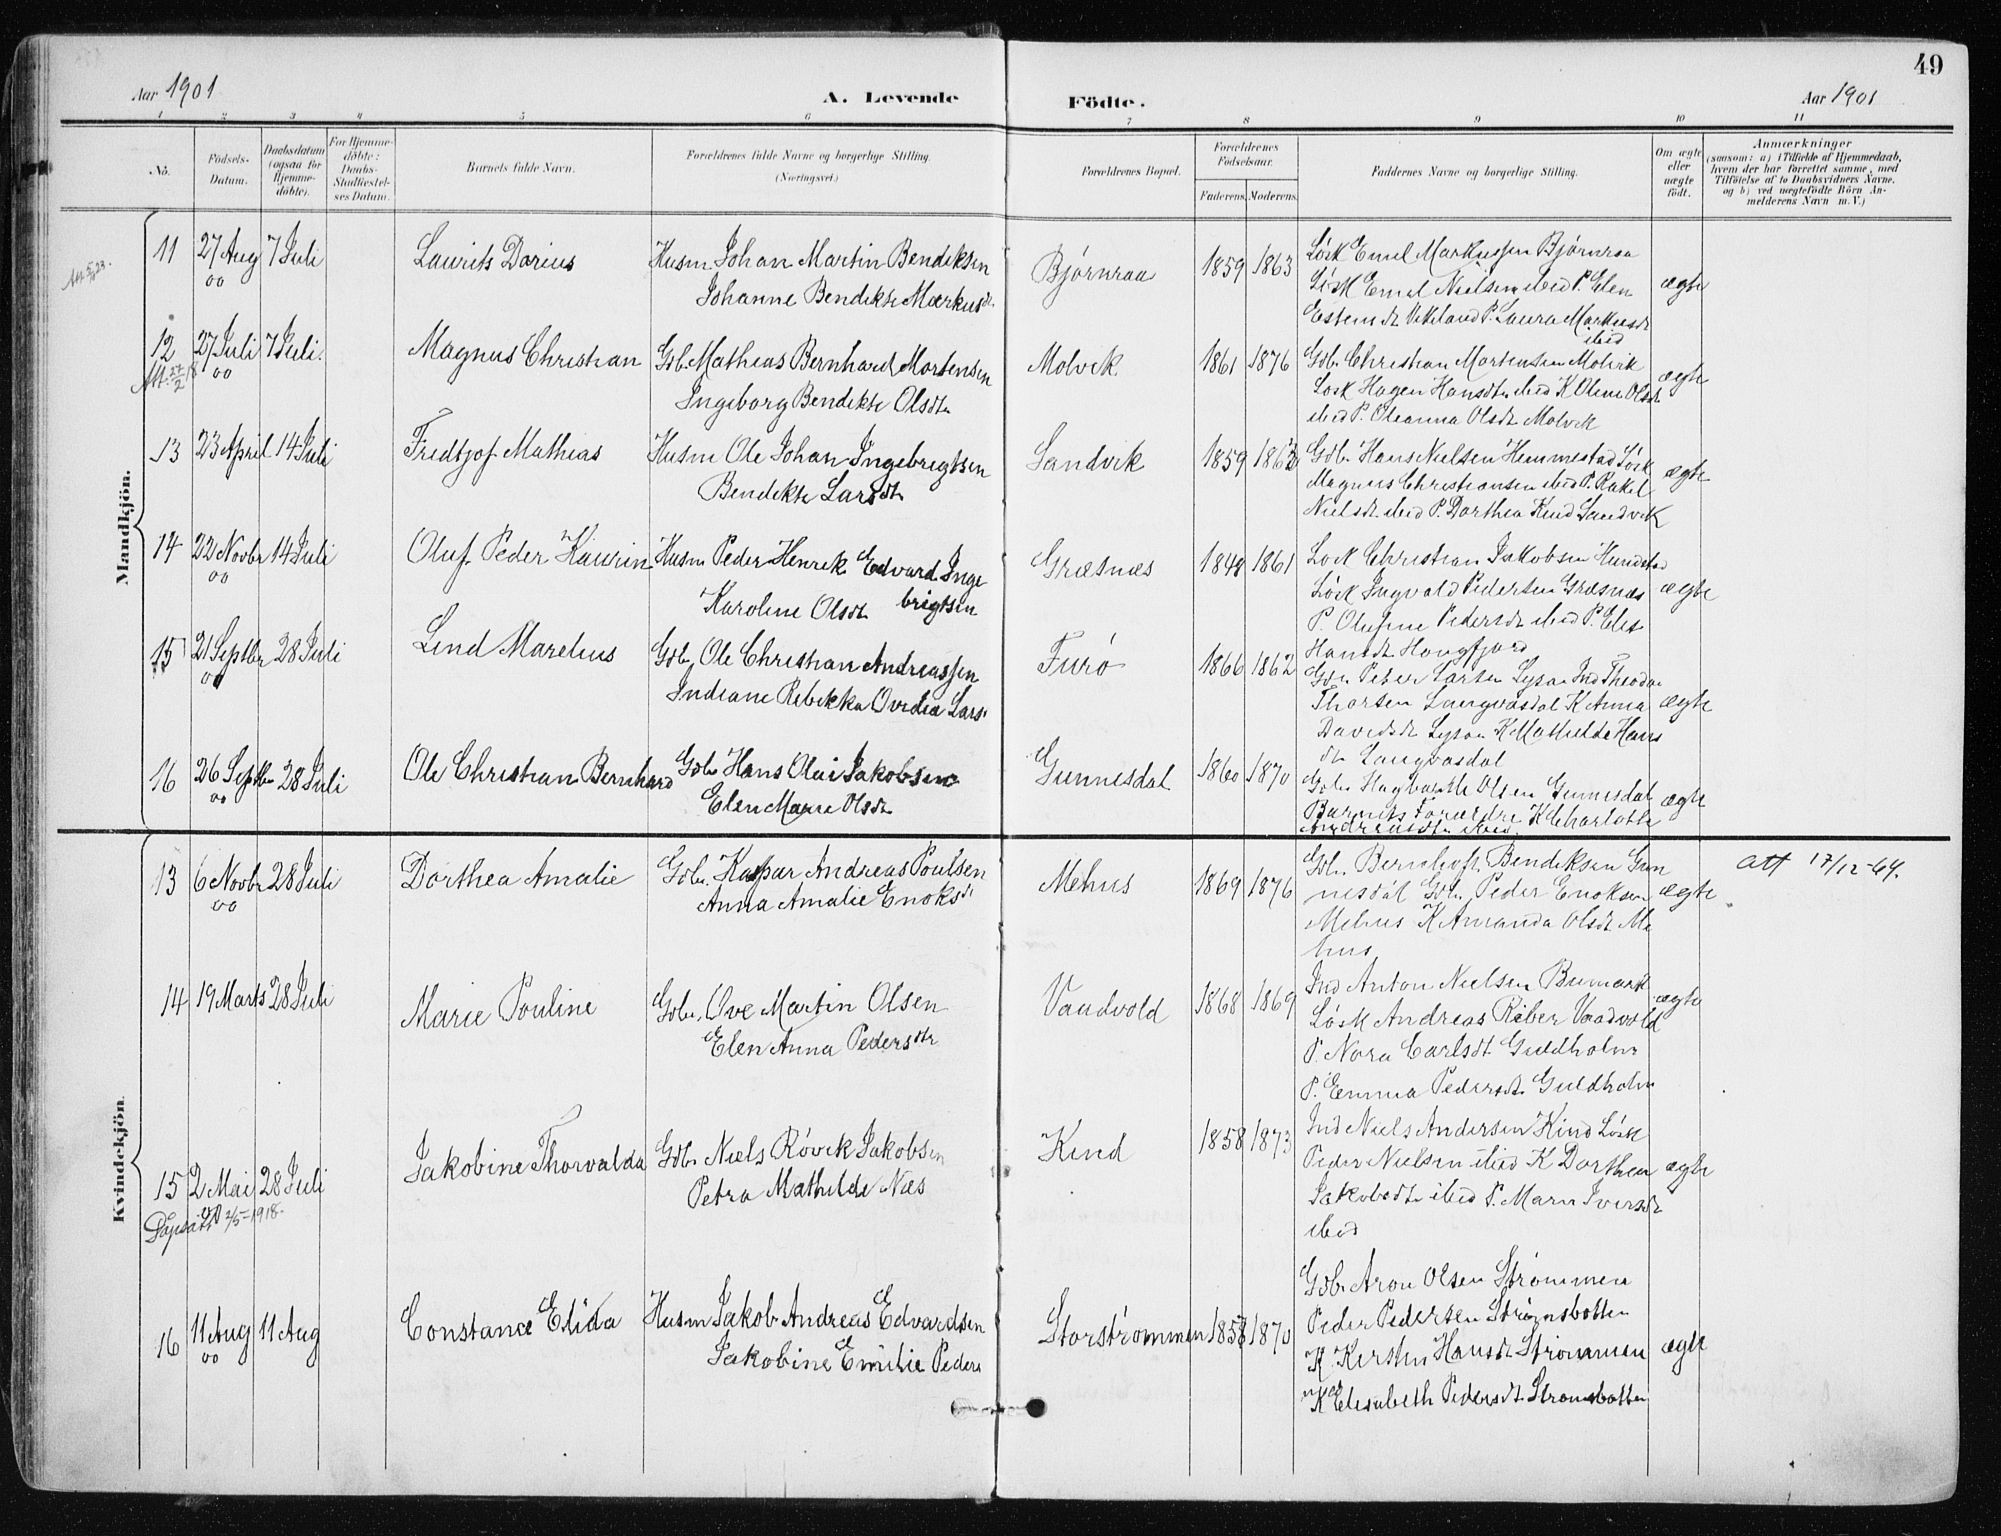 49
Aar 1901
A. Levende
Födte.
Aar 1901
1 2 3 4 5 6 7 8 9 10 11
No.
Födsels-Datum.
Daabsdatum (ogsaa for Hjemme-döbte).
For Hjemme-döbte: Daabs-Stadfæstel-ses Datum.
Barnets fulde Navn.
Forældrenes fulde Navne og borgerlige Stilling. (Næringsvei.)
Forældrenes Bopæl.
Forældrenes Födselsaar.
Faderens.
Moderens.
Faddernes Navne og borgerlige Stilling.
Om ægte eller uægte födt.
Anmærkninger
(saasom: a) i Tilfælde af Hjemmedaab,
hvem der har forrettet samme, med
Tilföielse af to Daabsvidners Navne,
og b) ved uægtefödte Börn An-
melderens Navn m. V.)
Mandkjön.
11 27 Aug 00 7 Juli Laurits Dorius
Husm Johan Martin Bendiksen
Johanne Bendikte Markusdt.
Bjørnraa 1859 1863
Løsk Emil Markussen Bjørnraa
Løsk Emil Nielsen ibid P. Elen
Estensdt Vikeland P. Laura Markusdt
ibid
ægte
12 27 Juli 00 7 Juli. Magnus Christian
Att. 27/2 18
Gbr. Mathias Bernhard Mortensen
Ingeborg Bendikte Olsdtr
Molvik 1861 1876
Gbr. Christian Mortensen Molvik
Løsk Hagen Hansdtr ibid K Oline Olsdt
ibid P. Oleanna Olsdt Molvik
ægte
13 23 April 14 Juli Fredtjof Mathias
Husm Ole Johan Ingebrigtsen
Bendikte Larsdt
Sandvik 1859
Gbr. Hans Nielsen Hemmestad Løsk
Magnus Christiansen ibid P. Rakel
Nielsdt ibid P. Dorthea Kind Sandvik
ægte
14 22 Novbr 00 14 Juli Oluf Peder Kaurin
Husm Peder Henrik Edvard Inge
brigtsen
Karoline Olsdt
Græsnæs 1848 1861
Løsk Christian Jakobsen Hundstad
Løsk Ingvald Pedersen Græsnæs
P. Olufine Pedersdt ibid P. Elise
Hansdt Hongfjord
ægte
15 21 Septbr 00 28 Juli Lind Marelius
Gbr. Ole Christian Andreassen
Indiane Rebekka Ovidia Lars
Furø 1866 1862
Gbr. Peter Larsen Lysaa Ind Theodor
Thorsen Langvasdal K Anna
Davidsdt Lysaa K Mathilde Hans
dt Langvasdal
ægte
16 26 Septbr 00 28 Juli Ole Christian Bernhard
Gbr Hans Olai Jakobsen
Elen Marie Olsdt
Gunnesdal 1860 1870
Gbr Hagbarth Olsen Gunnesdal
Barnets Forældre K Charlotte
Andreasdtr ibid.
ægte
Kvindekjön.
13 6 Novbr 00 28 Juli Dorthea Amalie
Gbr. Kaspar Andreas Poulsen
Anna Amalie Enoksdt
Mehus 1869 1876
Gbr. Bernhoft Bendiksen Gun
nesdal Gbr. Peder Enoksen
Mehus K Amanda Olsdt Me
hus
ægte
att 17/12-64.
14 19 Marts 28 Juli Marie Pouline
Gbr. Ove Martin Olsen
Elen Anna Pedersdtr
Vaadvold 1868 1869
Ind Anton Nielsen Bumark
Løsk Andreas Riber Vaadvold
P. Nora Carlsdt Guldholm
P. Emma Pedersdt Guldholm
ægte
15 2 Mai 28 Juli Jakobine Thorvalda
2/5-1918.
Gbr. Niels Røvik Jakobsen
Petra Mathilde Næs
Kind 1858 1873
Ind Niels Andersen Kind Løsk
Peder Nielsen ibid K Dorthea
Jakobsdt ibid P. Maren Iversdt
ibid
ægte
16 11 Aug 00 11 Aug Constance Elida
Husm Jakob Andreas Edvardsen
Jakobine Emilie Peders
Storstrømmen 1858 1870
Gbr. Aron Olsen Strømmen
Peder Pedersen Strømsbotten
K. Kirsten Hansdt Strømmen
K Elisabeth Pedersdt Strømsbotten
ægte